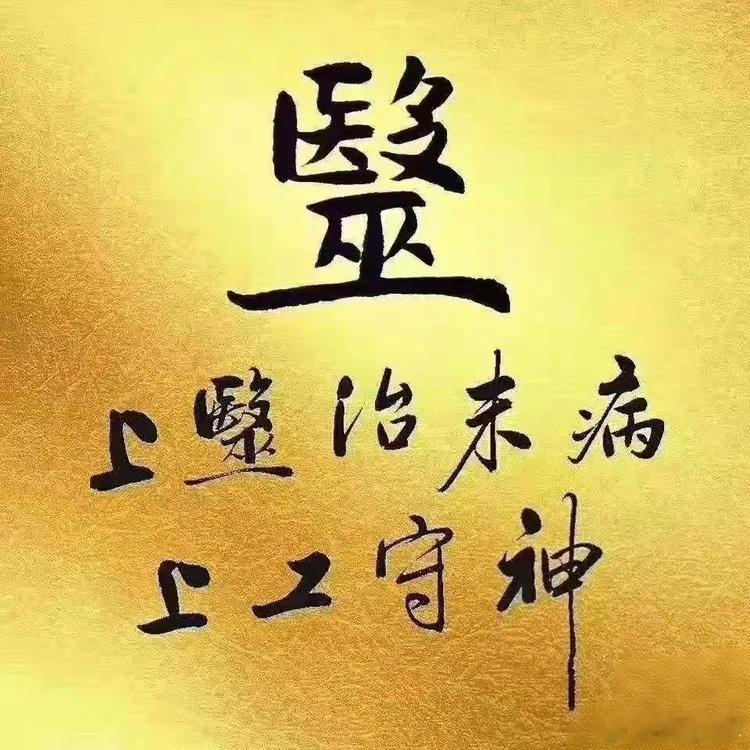 毉
上毉治未病
上工守神